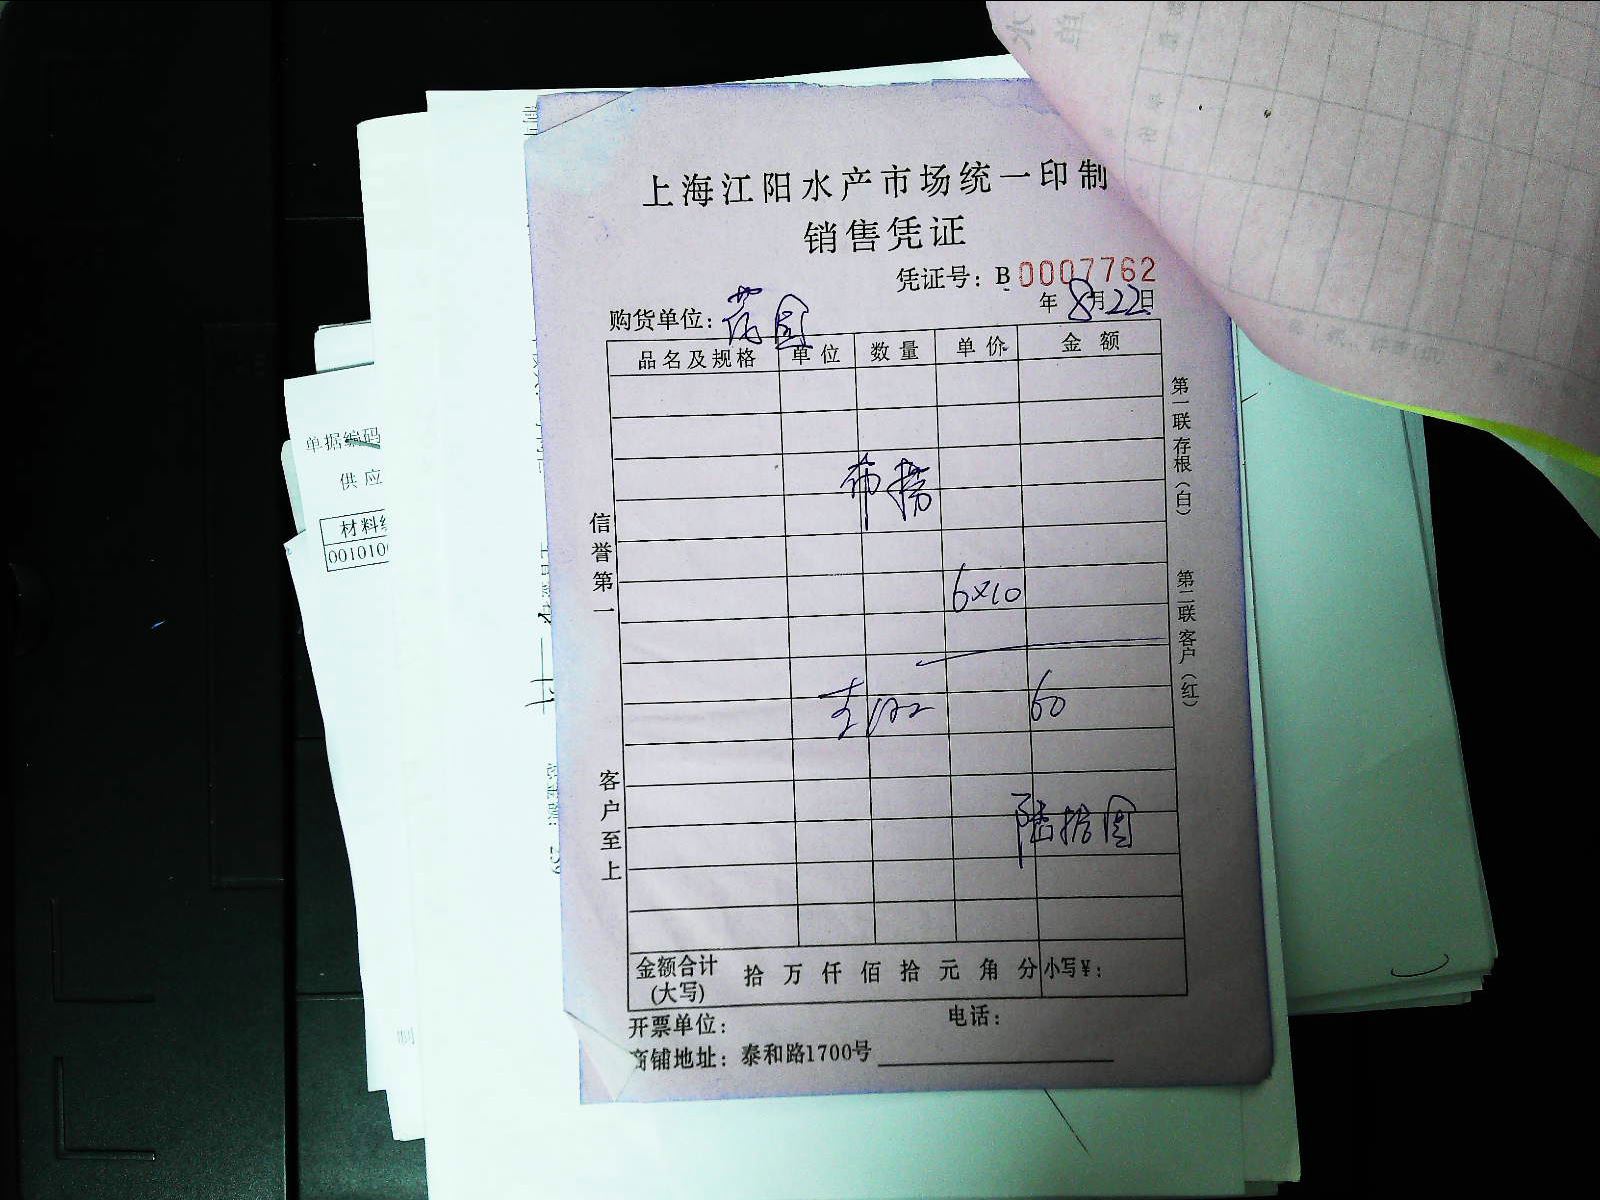 上海江阳水产市场统一印制
销售凭证
凭证号：B 0007762
年 8月22日
购货单位：
品名及规格 单位 数量 单价 金额
6×10
60
陆拾圆
金额合计(大写) 拾 万 仟 佰 拾 元 角 分 小写¥：
开票单位： 电话：
商铺地址：泰和路1700号
信誉第一
客户至上
第一联存根（白）
第二联客户（红）
单据编码
供应
材料
001010
制